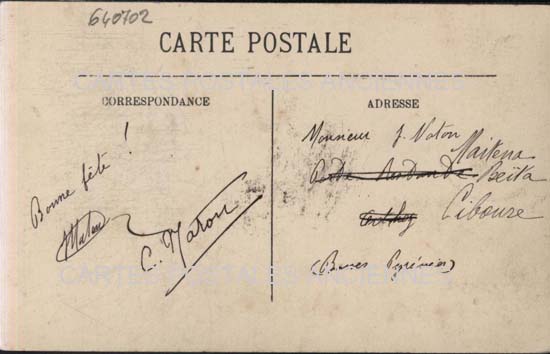 640702
CARTE POSTALE
CARTES POSTALES ANCIENNES
CORRESPONDANCE
ADRESSE
Bonne fête !
C. Maton
Monsieur J. Vaton
Maitena
Baïta
Ciboure
(Basses Pyrénées)
CARTES POSTALES ANCIENNES